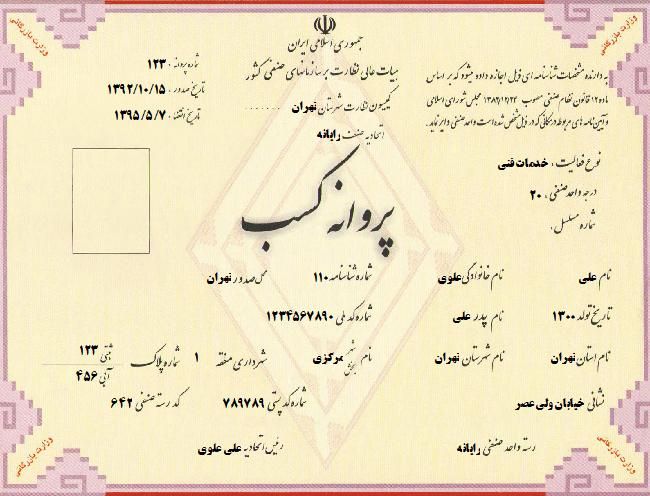 وزارت بازرگانی
وزارت بازرگانی
جمهوری اسلامی ایران
هیات عالی نظارت بر سازمانهای صنفی کشور
کمیسیون نظارت شهرستان تهران ........
اتحادیه صنف رایانه
شماره پروانه : ۱۲۳
تاریخ صدور : ۱۳۹۲/۱۰/۱۵
تاریخ انقضاء : ۱۳۹۵/۵/۷
به دارنده مشخصات شناسنامه ای ذیل اجازه داده میشود که بر اساس
ماده ۱۲ قانون نظام صنفی مصوب ۱۳۸۲/۱۲/۲۴ مجلس شورای اسلامی
و آیین نامه های مربوطه در مکانی که در ذیل مشخص شده است واحد صنفی دایر نماید.
نوع فعالیت : خدمات فنی
درجه واحد صنفی : ۲۰
شماره مسلسل :
پروانه کسب
نام علی نام خانوادگی علوی شماره شناسنامه ۱۱۰ محل صدور تهران
تاریخ تولد ۱۳۰۰ نام پدر علی شماره کد ملی ۱۲۳۴۵۶۷۸۹۰
نام استان تهران نام شهرستان تهران نام شهر بخش مرکزی شهرداری منطقه ۱ شماره پلاک ثبتی ۱۲۳ آبی ۴۵۶
نشانی خیابان ولی عصر شماره کد پستی ۷۸۹۷۸۹ کد رسته صنفی ۶۴۲
رسته واحد صنفی رایانه رئیس اتحادیه علی علوی
وزارت بازرگانی
وزارت بازرگانی